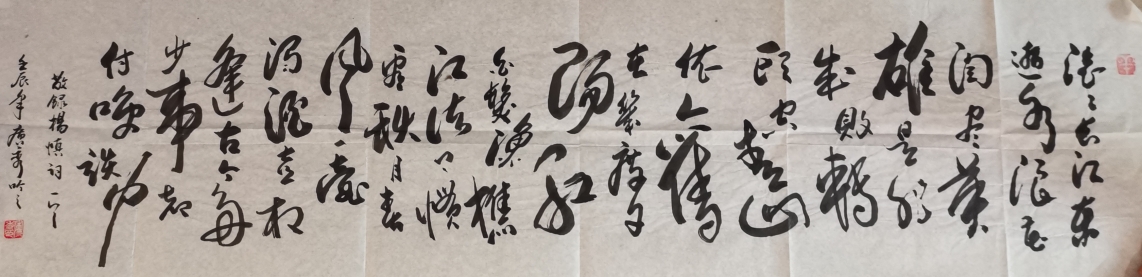 滚滚长江东
逝水浪花
淘尽英
雄是非
成敗轉
头空青山
依舊
在几度夕
陽红
白髮漁樵
江渚上慣
看秋月春
风一壶
浊酒喜相
逢古今多
少事都
付笑谈中
敬録楊慎词一首
壬辰年